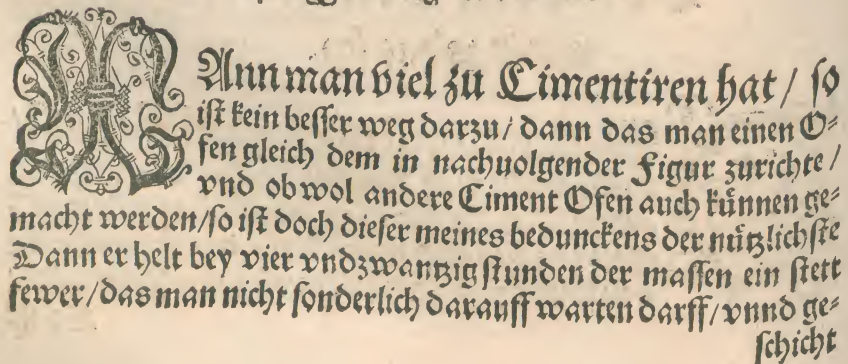 WAnn man viel zu Cimentiren hat / so
ist kein besser weg darzu / dann das man einen O⸗
fen gleich dem in nachuolgender Figur zurichte /
vnd ob wol andere Ciment Ofen auch künnen ge⸗
macht werden / so ist doch dieser meines bedunckens der nützlichste
Dann er helt bey vier vndzwantzig stunden der massen ein stett
fewer / das man nicht sonderlich darauff warten darff / vnnd ge⸗
schicht